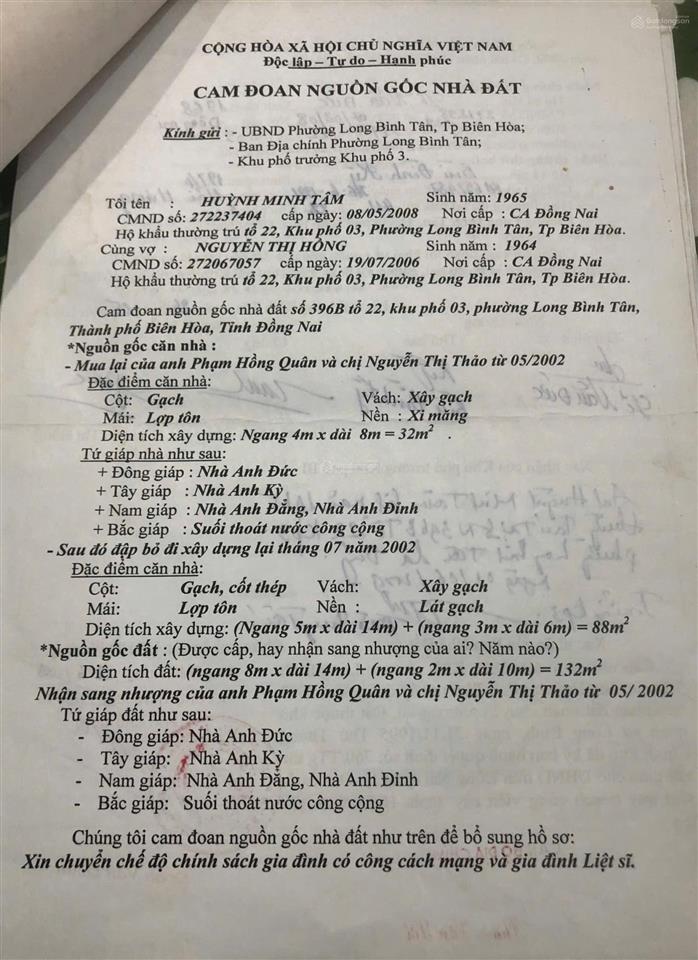 CỘNG HÒA XÃ HỘI CHỦ NGHĨA VIỆT NAM
Độc lập – Tự do – Hạnh phúc
CAM ĐOAN NGUỒN GỐC NHÀ ĐẤT
Kính gửi : - UBND Phường Long Bình Tân, Tp Biên Hòa;
- Ban Địa chính Phường Long Bình Tân;
- Khu phố trưởng Khu phố 3.
Tôi tên : HUỲNH MINH TÂM Sinh năm: 1965
CMND số: 272237404 cấp ngày: 08/05/2008 Nơi cấp : CA Đồng Nai
Hộ khẩu thường trú tổ 22, Khu phố 03, Phường Long Bình Tân, Tp Biên Hòa.
Cùng vợ : NGUYỄN THỊ HỒNG Sinh năm : 1964
CMND số: 272067057 cấp ngày: 19/07/2006 Nơi cấp : CA Đồng Nai
Hộ khẩu thường trú tổ 22, Khu phố 03, Phường Long Bình Tân, Tp Biên Hòa.
Cam đoan nguồn gốc nhà đất số 396B tổ 22, khu phố 03, phường Long Bình Tân,
Thành phố Biên Hòa, Tỉnh Đồng Nai
*Nguồn gốc căn nhà :
- Mua lại của anh Phạm Hồng Quân và chị Nguyễn Thị Thảo từ 05/2002
Đặc điểm căn nhà:
Cột: Gạch Vách: Xây gạch
Mái: Lợp tôn Nền : Xi măng
Diện tích xây dựng: Ngang 4m x dài 8m = 32m² .
Tứ giáp nhà như sau:
+ Đông giáp : Nhà Anh Đức
+ Tây giáp : Nhà Anh Kỳ
+ Nam giáp : Nhà Anh Đẳng, Nhà Anh Đỉnh
+ Bắc giáp : Suối thoát nước công cộng
- Sau đó đập bỏ đi xây dựng lại tháng 07 năm 2002
Đặc điểm căn nhà:
Cột: Gạch, cốt thép Vách: Xây gạch
Mái: Lợp tôn Nền : Lát gạch
Diện tích xây dựng: (Ngang 5m x dài 14m) + (ngang 3m x dài 6m) = 88m²
*Nguồn gốc đất : (Được cấp, hay nhận sang nhượng của ai? Năm nào?)
Diện tích đất: (ngang 8m x dài 14m) + (ngang 2m x dài 10m) = 132m²
Nhận sang nhượng của anh Phạm Hồng Quân và chị Nguyễn Thị Thảo từ 05/ 2002
Tứ giáp đất như sau:
- Đông giáp: Nhà Anh Đức
- Tây giáp: Nhà Anh Kỳ
- Nam giáp: Nhà Anh Đẳng, Nhà Anh Đỉnh
- Bắc giáp: Suối thoát nước công cộng
Chúng tôi cam đoan nguồn gốc nhà đất như trên để bổ sung hồ sơ:
Xin chuyển chế độ chính sách gia đình có công cách mạng và gia đình Liệt sĩ.